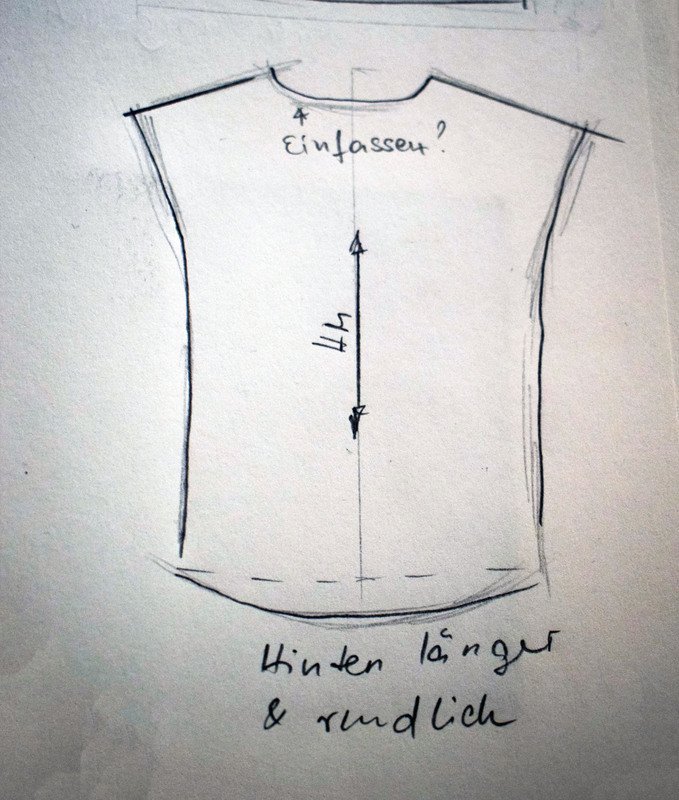 Einfassen?
Hinten länger
& rundlich